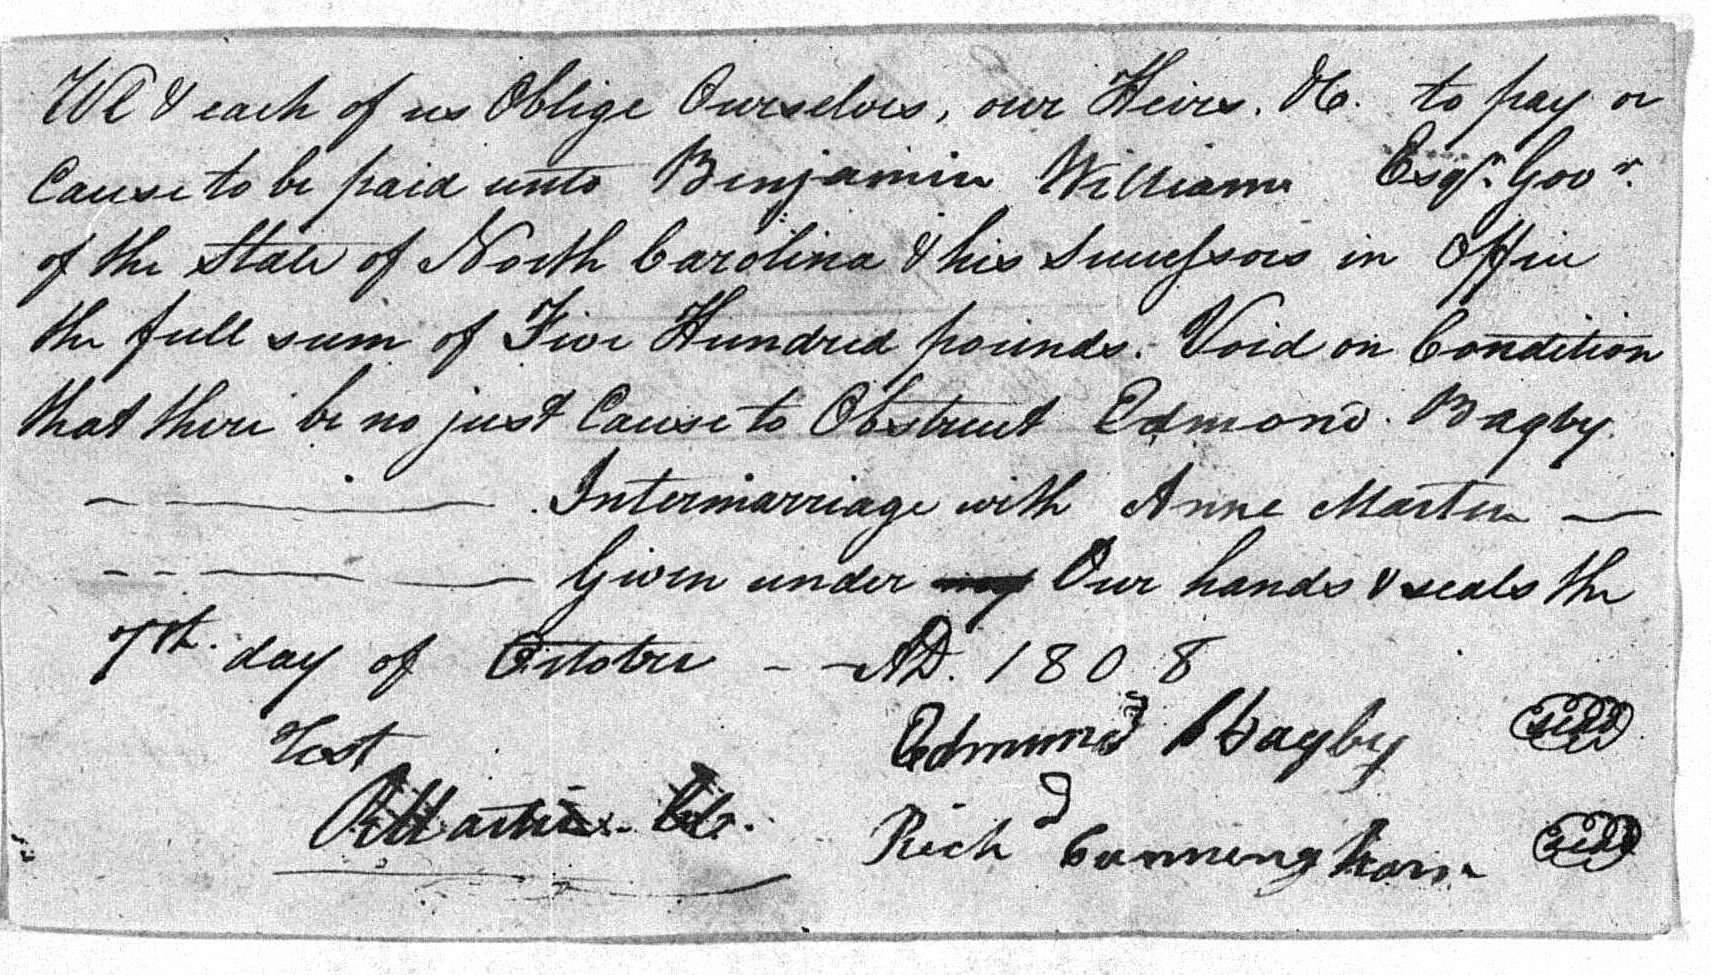 We & each of us Oblige Ourselves, our Heirs. &c. to pay or
Cause to be paid unto Benjamin Williams Esqr. Govr.
of the State of North Carolina & his Successors in Office
the full sum of Five Hundred pounds. Void on Condition
that there be no just Cause to Obstruct Edmond Bagby.
Intermarriage with Anne Martin
Given under Our hands & seals the
7th. day of October AD. 1808
Test
Edmund Bagby seal
Martin
Richd Cunningham seal